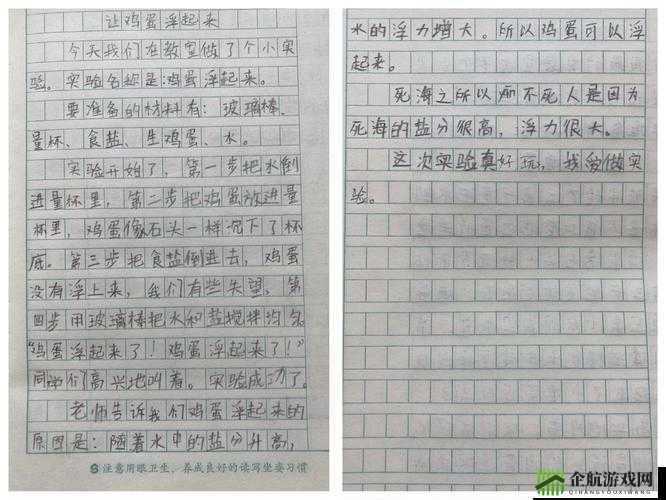 让鸡蛋浮起来
今天我们在教室做了个小实
验。实验名称是:鸡蛋浮起来。
要准备的材料有：玻璃棒、
量杯、食盐、生鸡蛋、水。
实验开始了，第一步把水倒
进量杯里，第二步把鸡蛋放进量
杯里，鸡蛋像石头一样沉下了杯
底。第三步把食盐倒进去，鸡蛋
没有浮上来，我们有些失望，第
四步用玻璃棒把水和盐搅拌均匀。
“鸡蛋浮起来了！鸡蛋浮起来了！”
同学们高兴地叫着。实验成功了。
老师告诉我们鸡蛋浮起来的
原因是：随着水中的盐分升高，
注意用眼卫生、养成良好的读写坐姿习惯
水的浮力增大。所以鸡蛋可以浮
起来。
死海之所以 不死人是因为
死海的盐分很高，浮力很大。
这次实验真好玩，我爱做实
验。
企航游戏网
QIHANGYOUXIWANG